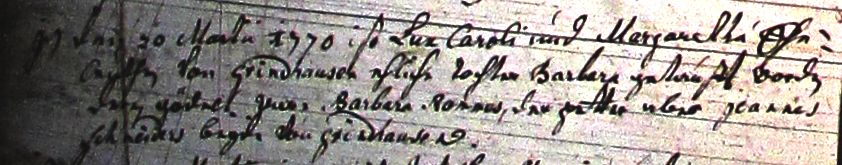 den 30 Martii 1770 ist Lux Caroli und Margaretha Ehe=
leuthen von grindhausen ehliche tochter Barbara getauft worden
deren gödel Barbara, der petter aber joannes
schneiders beyde von grindhausen.